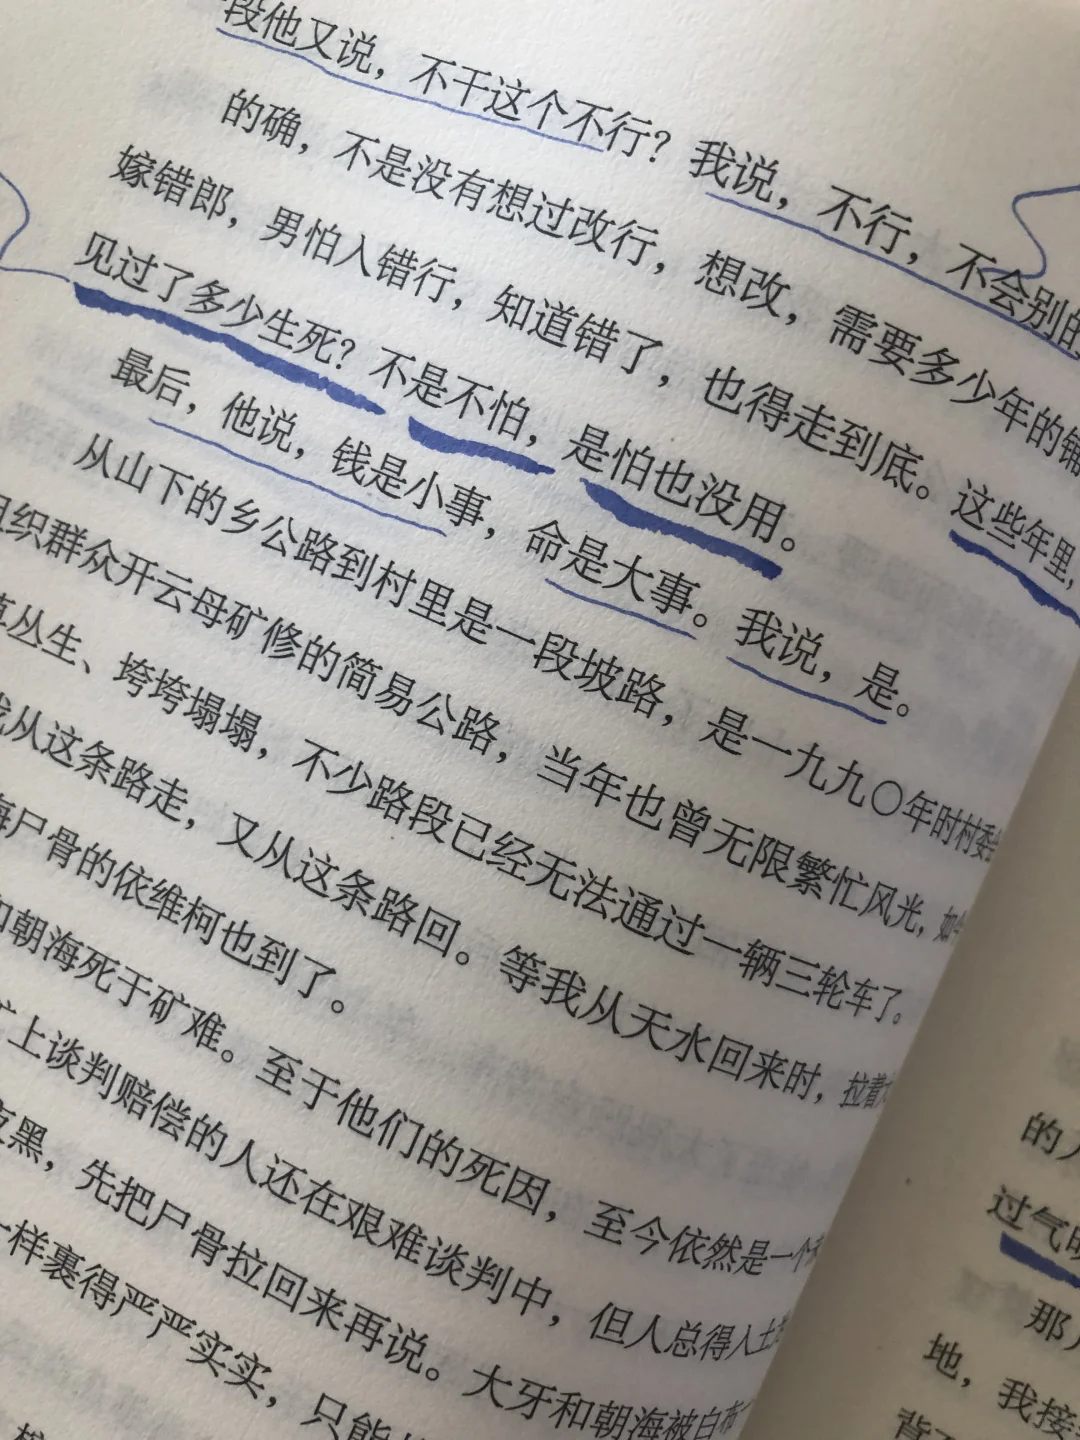 段他又说，不干这个不行？我说，不行，不会别的
的确，不是没有想过改行，想改，需要多少年的铺
嫁错郎，男怕入错行，知道错了，也得走到底。这些年里，
见过了多少生死？不是不怕，是怕也没用。
最后，他说，钱是小事，命是大事。我说，是。
从山下的乡公路到村里是一段坡路，是一九九〇年时村委会
组织群众开云母矿修的简易公路，当年也曾无限繁忙风光，如今
丛生、垮垮塌塌，不少路段已经无法通过一辆三轮车了。
我从这条路走，又从这条路回。等我从天水回来时，拉着大
海尸骨的依维柯也到了。
和朝海死于矿难。至于他们的死因，至今依然是一个
矿上谈判赔偿的人还在艰难谈判中，但人总得入土
黑，先把尸骨拉回来再说。大牙和朝海被白布
一样裹得严严实实，只能
的
过气
那
地，我接